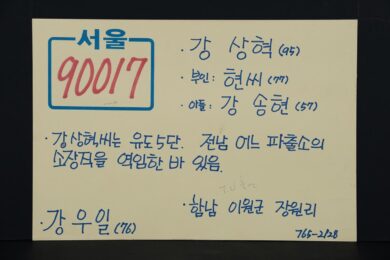 서울
90017
· 강 상혁 (95)
· 부인: 현씨 (77)
· 아들: 강 송현 (57)
· 강상혁씨는 유도5단. 전남 어느 파출소의
소장직을 역임한 바 있음.
· 함남 이원군 장원리
· 강 우 일 (76)
765-2128